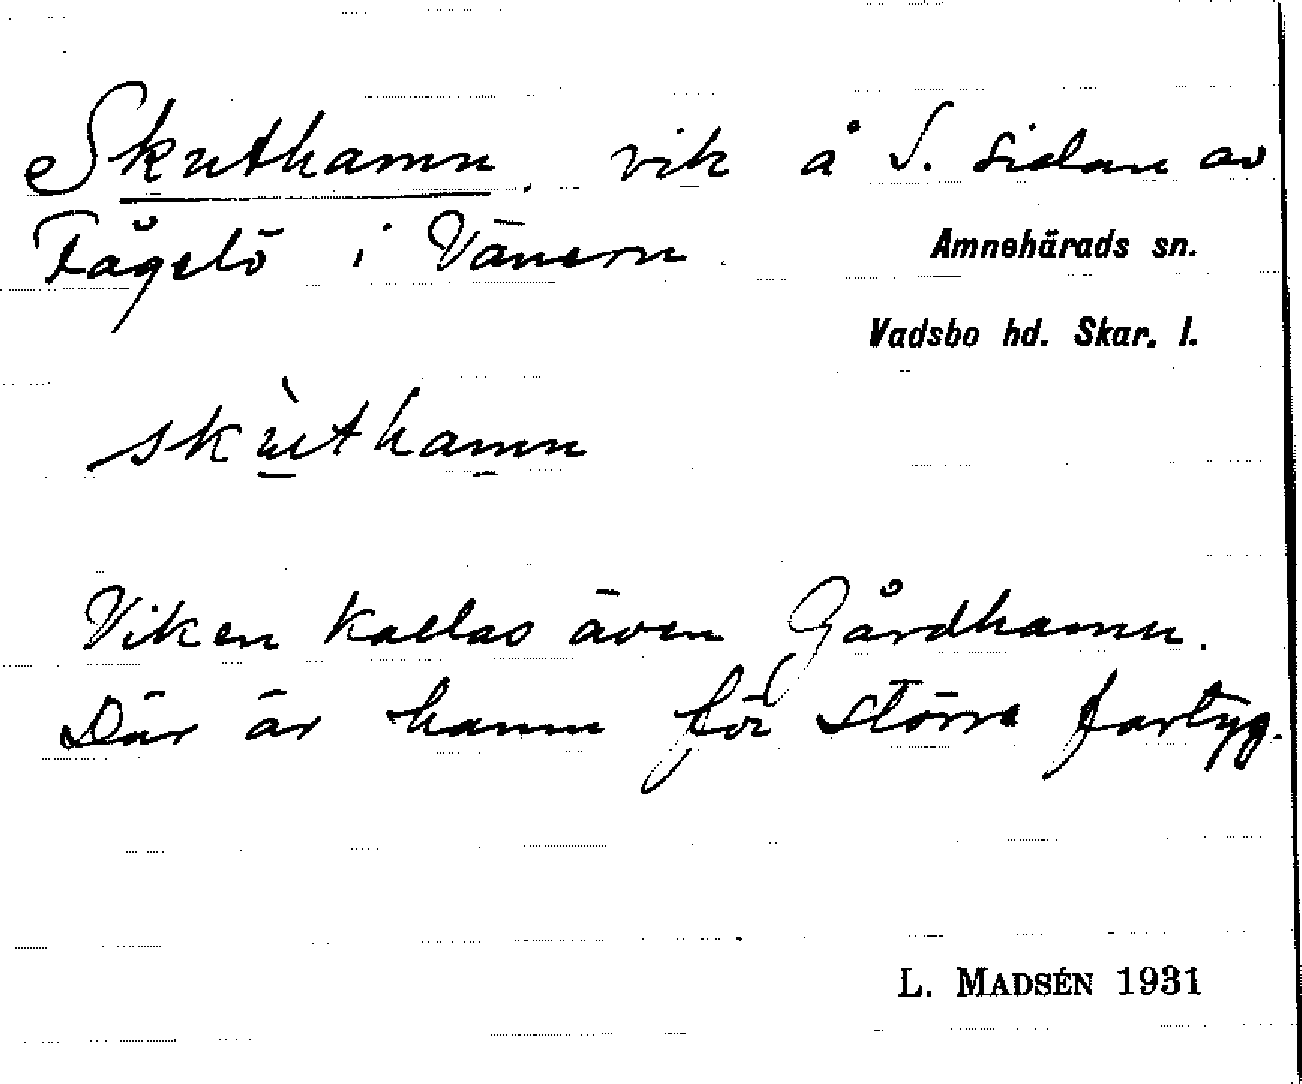 Skuthamn, vik å S. sidan av
Fågelö i Vänern.
Amnehärads sn.
Vadsbo hd. Skar. l.
skùthamn
Viken kallas även Gårdhamn.
Där är hamn för större fartyg.
L. MADSÉN 1931